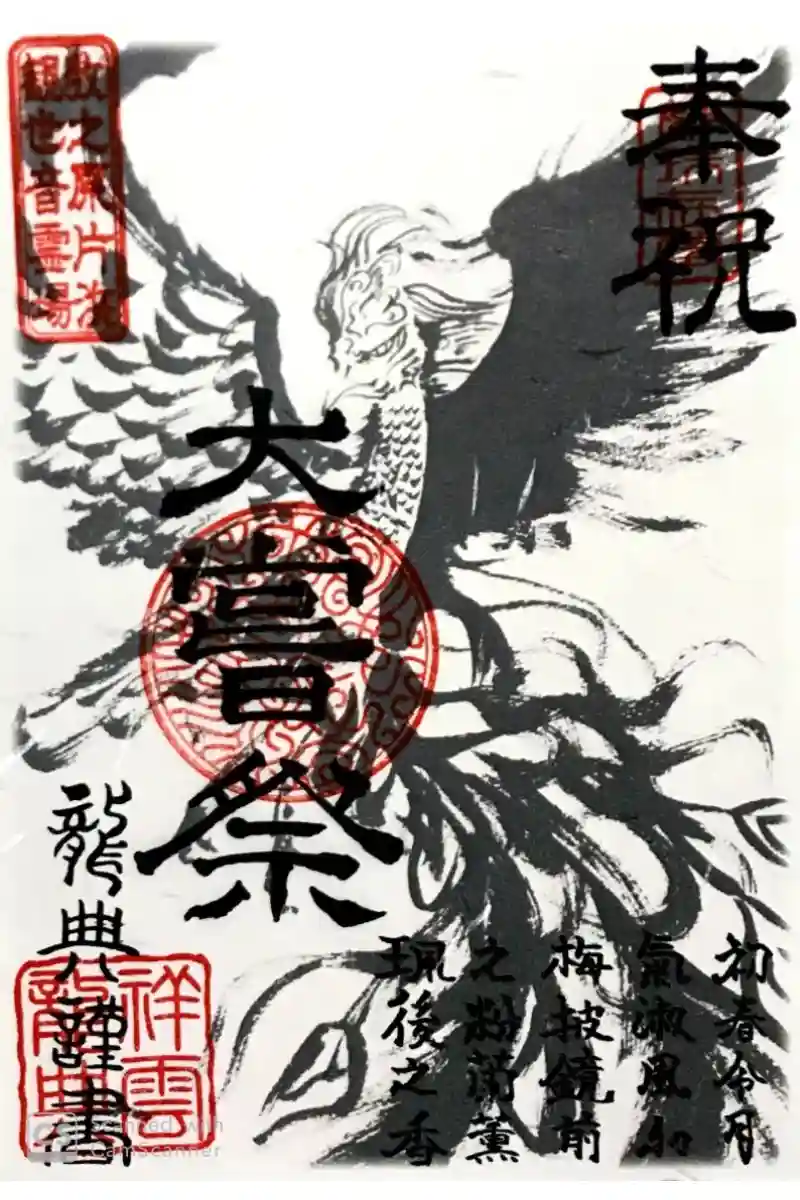 奉祝
大嘗祭
初春令月
氣淑風和
梅披鏡前
之粉蘭薫
珮後之香
龍典謹書
牧之原片浜
観世音霊場
祥雲
龍典
Scanned with
CamScanner